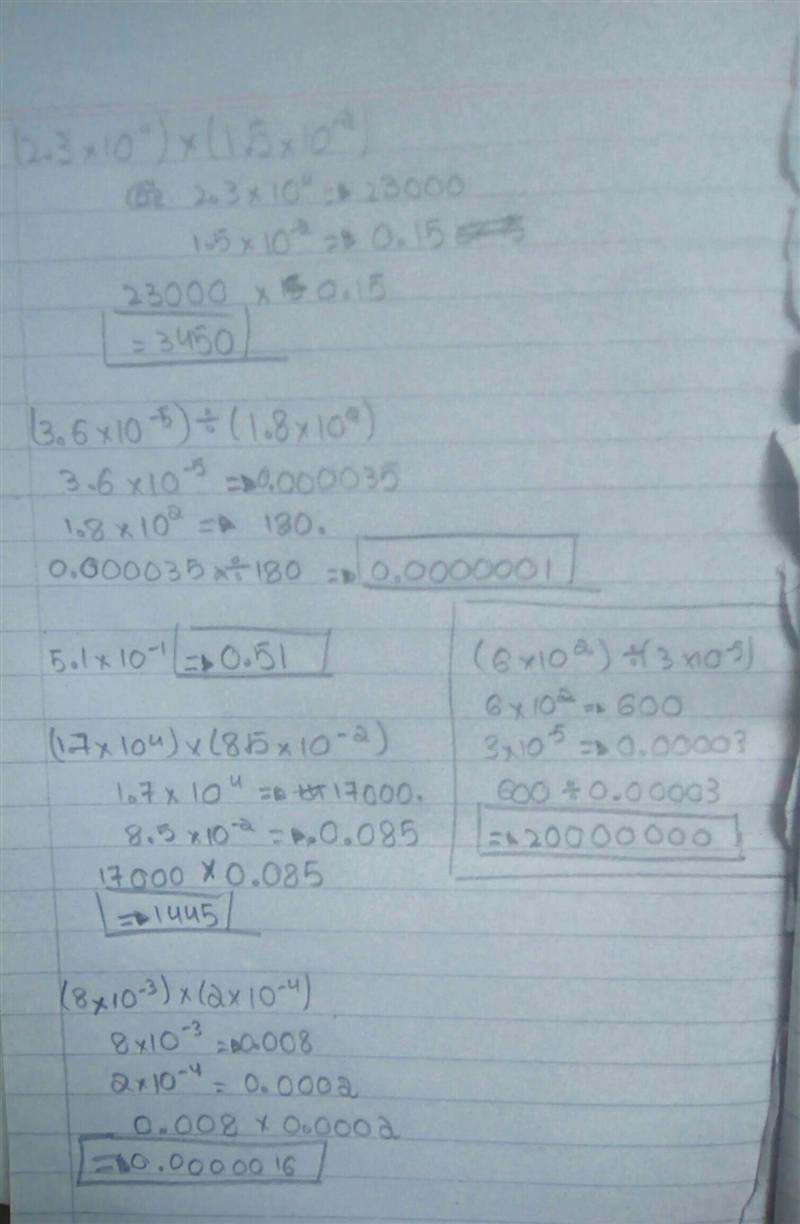 (2.3×10⁴)×(1.5×10⁻²)
2.3×10⁴ => 23000
1.5×10⁻² => 0.15
23000 × 0.15
= 3450
(3.6×10⁻⁵)÷(1.8×10²)
3.6×10⁻⁵ => 0.000035
1.8×10² => 180.
0.000035 ÷ 180 => 0.0000001
5.1×10⁻¹ => 0.51
(1.7×10⁴)×(8.5×10⁻²)
1.7×10⁴ => 17000.
8.5×10⁻² => 0.085
17000 × 0.085
=> 1445
(6×10²)÷(3×10⁻⁵)
6×10² => 600
3×10⁻⁵ => 0.00003
600 ÷ 0.00003
=> 20000000
(8×10⁻³)×(2×10⁻⁴)
8×10⁻³ => 0.008
2×10⁻⁴ = 0.0002
0.008 × 0.0002
=> 0.0000016